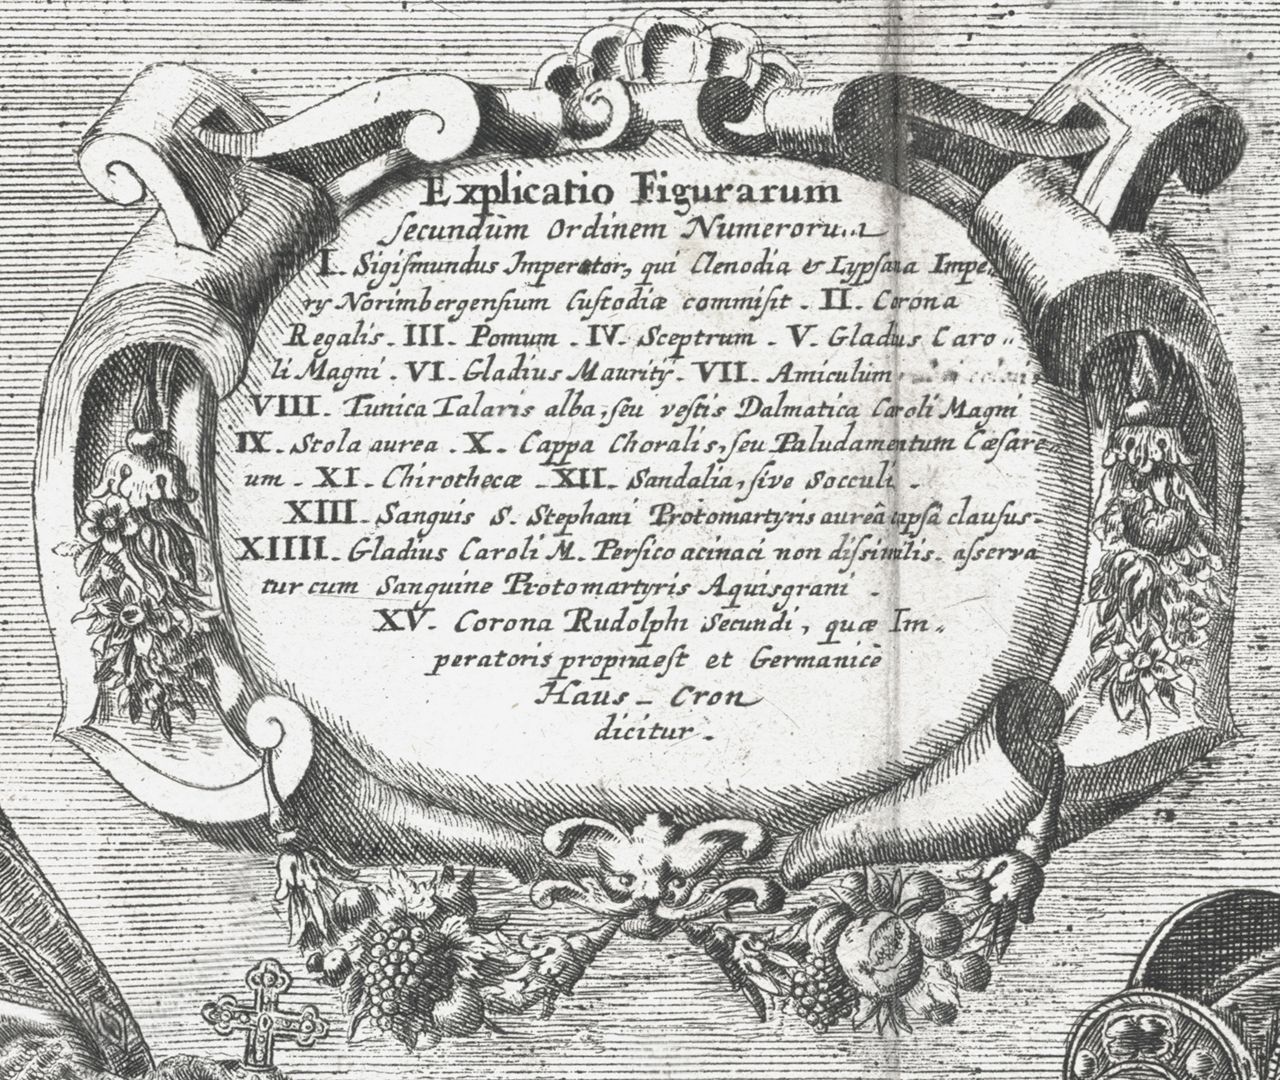 Explicatio Figurarum
secundùm Ordinem Numerorum
I. Sigismundus Imperator, qui Clenodia & Lypsana Impe,
ry Norimbergensium Custodiæ commisit. II. Corona
Regalis. III. Pomum. IV. Sceptrum. V. Gladius Caro-
li Magni. VI. Gladius Maurity. VII. Amiculum
VIII. Tunica Talaris alba, seu vestis Dalmatica Caroli Magni
IX. Stola aurea. X. Cappa Choralis, seu Paludamentum Cæsare-
um. XI. Chirothecæ. XII. Sandalia, sive Socculi.
XIII. Sanguis S. Stephani Protomartyris aureâ capsâ clausus.
XIIII. Gladius Caroli M. Persico acinaci non dissimilis. asserva
tur cum Sanguine Protomartyris Aquisgrani.
XV. Corona Rudolphi Secundi, quæ Im-
peratoris propria est et Germanicè
Haus-Cron
dicitur.